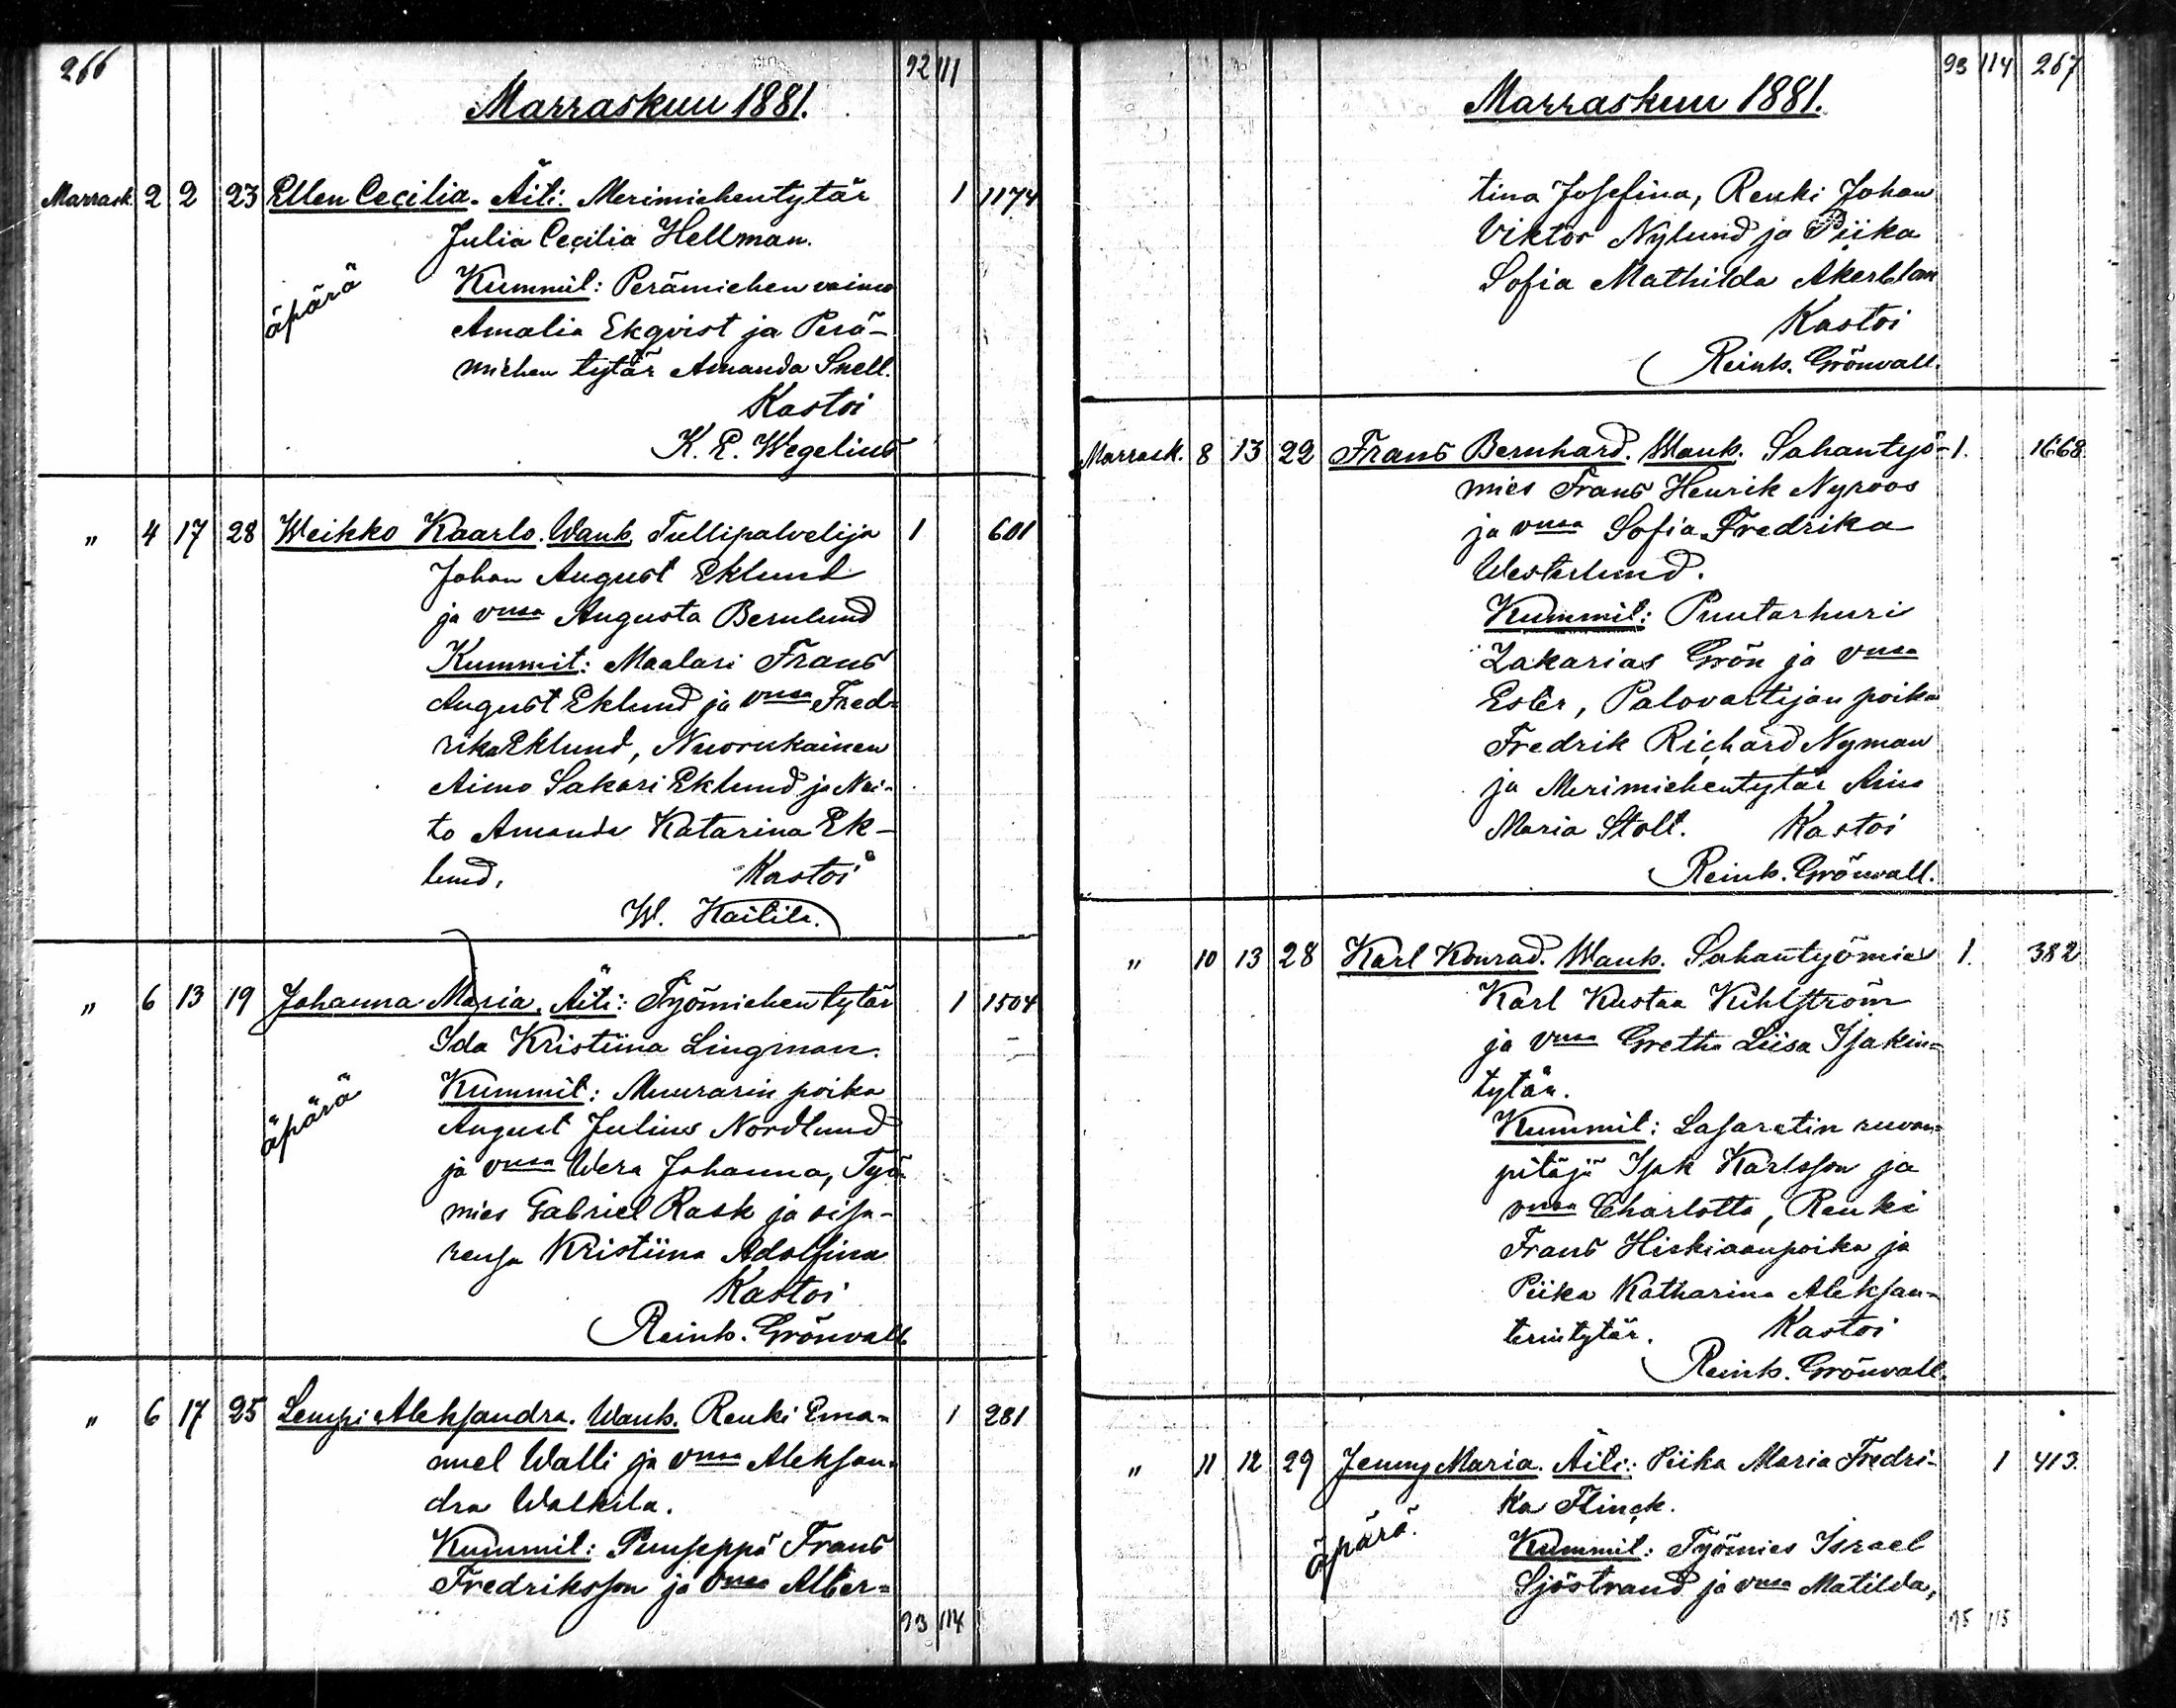 266 92 111
Marraskuu 1881.
Marrask. 2 2 23 Ellen Cecilia. Äiti: Merimiehentytär 1 1174
Julia Cecilia Hellman.
äpärä
Kummit: Perämiehen vaimo
Amalia Ekqvist ja Perä-
miehen tytär Amanda Snell.
Kastoi
K. E. Wegelius
" 4 17 28 Weikko Kaarlo. Wanh. Tullipalvelija 1 601
Johan August Eklund
ja vmsa Augusta Bernlund
Kummit: Maalari Frans
August Eklund ja vmsa Fred-
rika Eklund, Nuorukainen
Aimo Sakari Eklund ja Nei-
to Amanda Katarina Ek-
lund. Kastoi
W. Kaitila.
" 6 13 19 Johanna Maria. Äiti: Työmiehen tytär 1 1504
Ida Kristiina Lingman.
äpärä
Kummit: Muurarin poika
August Julius Nordlund
ja vmsa Wera Johanna, Työ-
mies Gabriel Rask ja sisa-
rensa Kristiina Adolfina
Kastoi
Reinh. Grönvall
" 6 17 25 Lempi Aleksandra. Wanh. Renki Ema- 1 281
nuel Walli ja vmsa Aleksan-
dra Walkila.
Kummit: Puuseppä Frans
Fredriksson ja vmsa Alber-
93 114
93 114 267
Marraskuu 1881.
tina Josefina, Renki Johan
Viktor Nylund ja Piika
Sofia Mathilda Akerblom
Kastoi
Reinh. Grönvall.
Marrask. 8 13 22 Frans Bernhard. Wanh. Sahantyö- 1. 1668
mies Frans Henrik Nyroos
ja vmsa Sofia Fredrika
Westerlund.
Kummit: Puutarhuri
Zakarias Grön ja vmsa
Ester, Palovartijan poika
Fredrik Richard Nyman
ja Merimiehentytär
Maria Stolt. Kastoi
Reinh. Grönvall.
" 10 13 28 Karl Konrad. Wanh. Sahantyömies 1. 382
Karl Kustaa Kihlström
ja vmsa Gretha Liisa Isakin-
tytär.
Kummit: Lasaretin ruvan-
pitäjä Isak Karlsson ja
vmsa Charlotta, Renki
Frans Hiskiaanpoika ja
Piika Katharina Aleksan-
terintytär. Kastoi
Reinh. Grönvall.
" 11 12 29 Jenny Maria. Äiti: Piika Maria Fredri- 1 413.
ka Flinck.
äpärä.
Kummit: Työmies Israel
Sjöstrand ja vmsa Matilda,
95 115